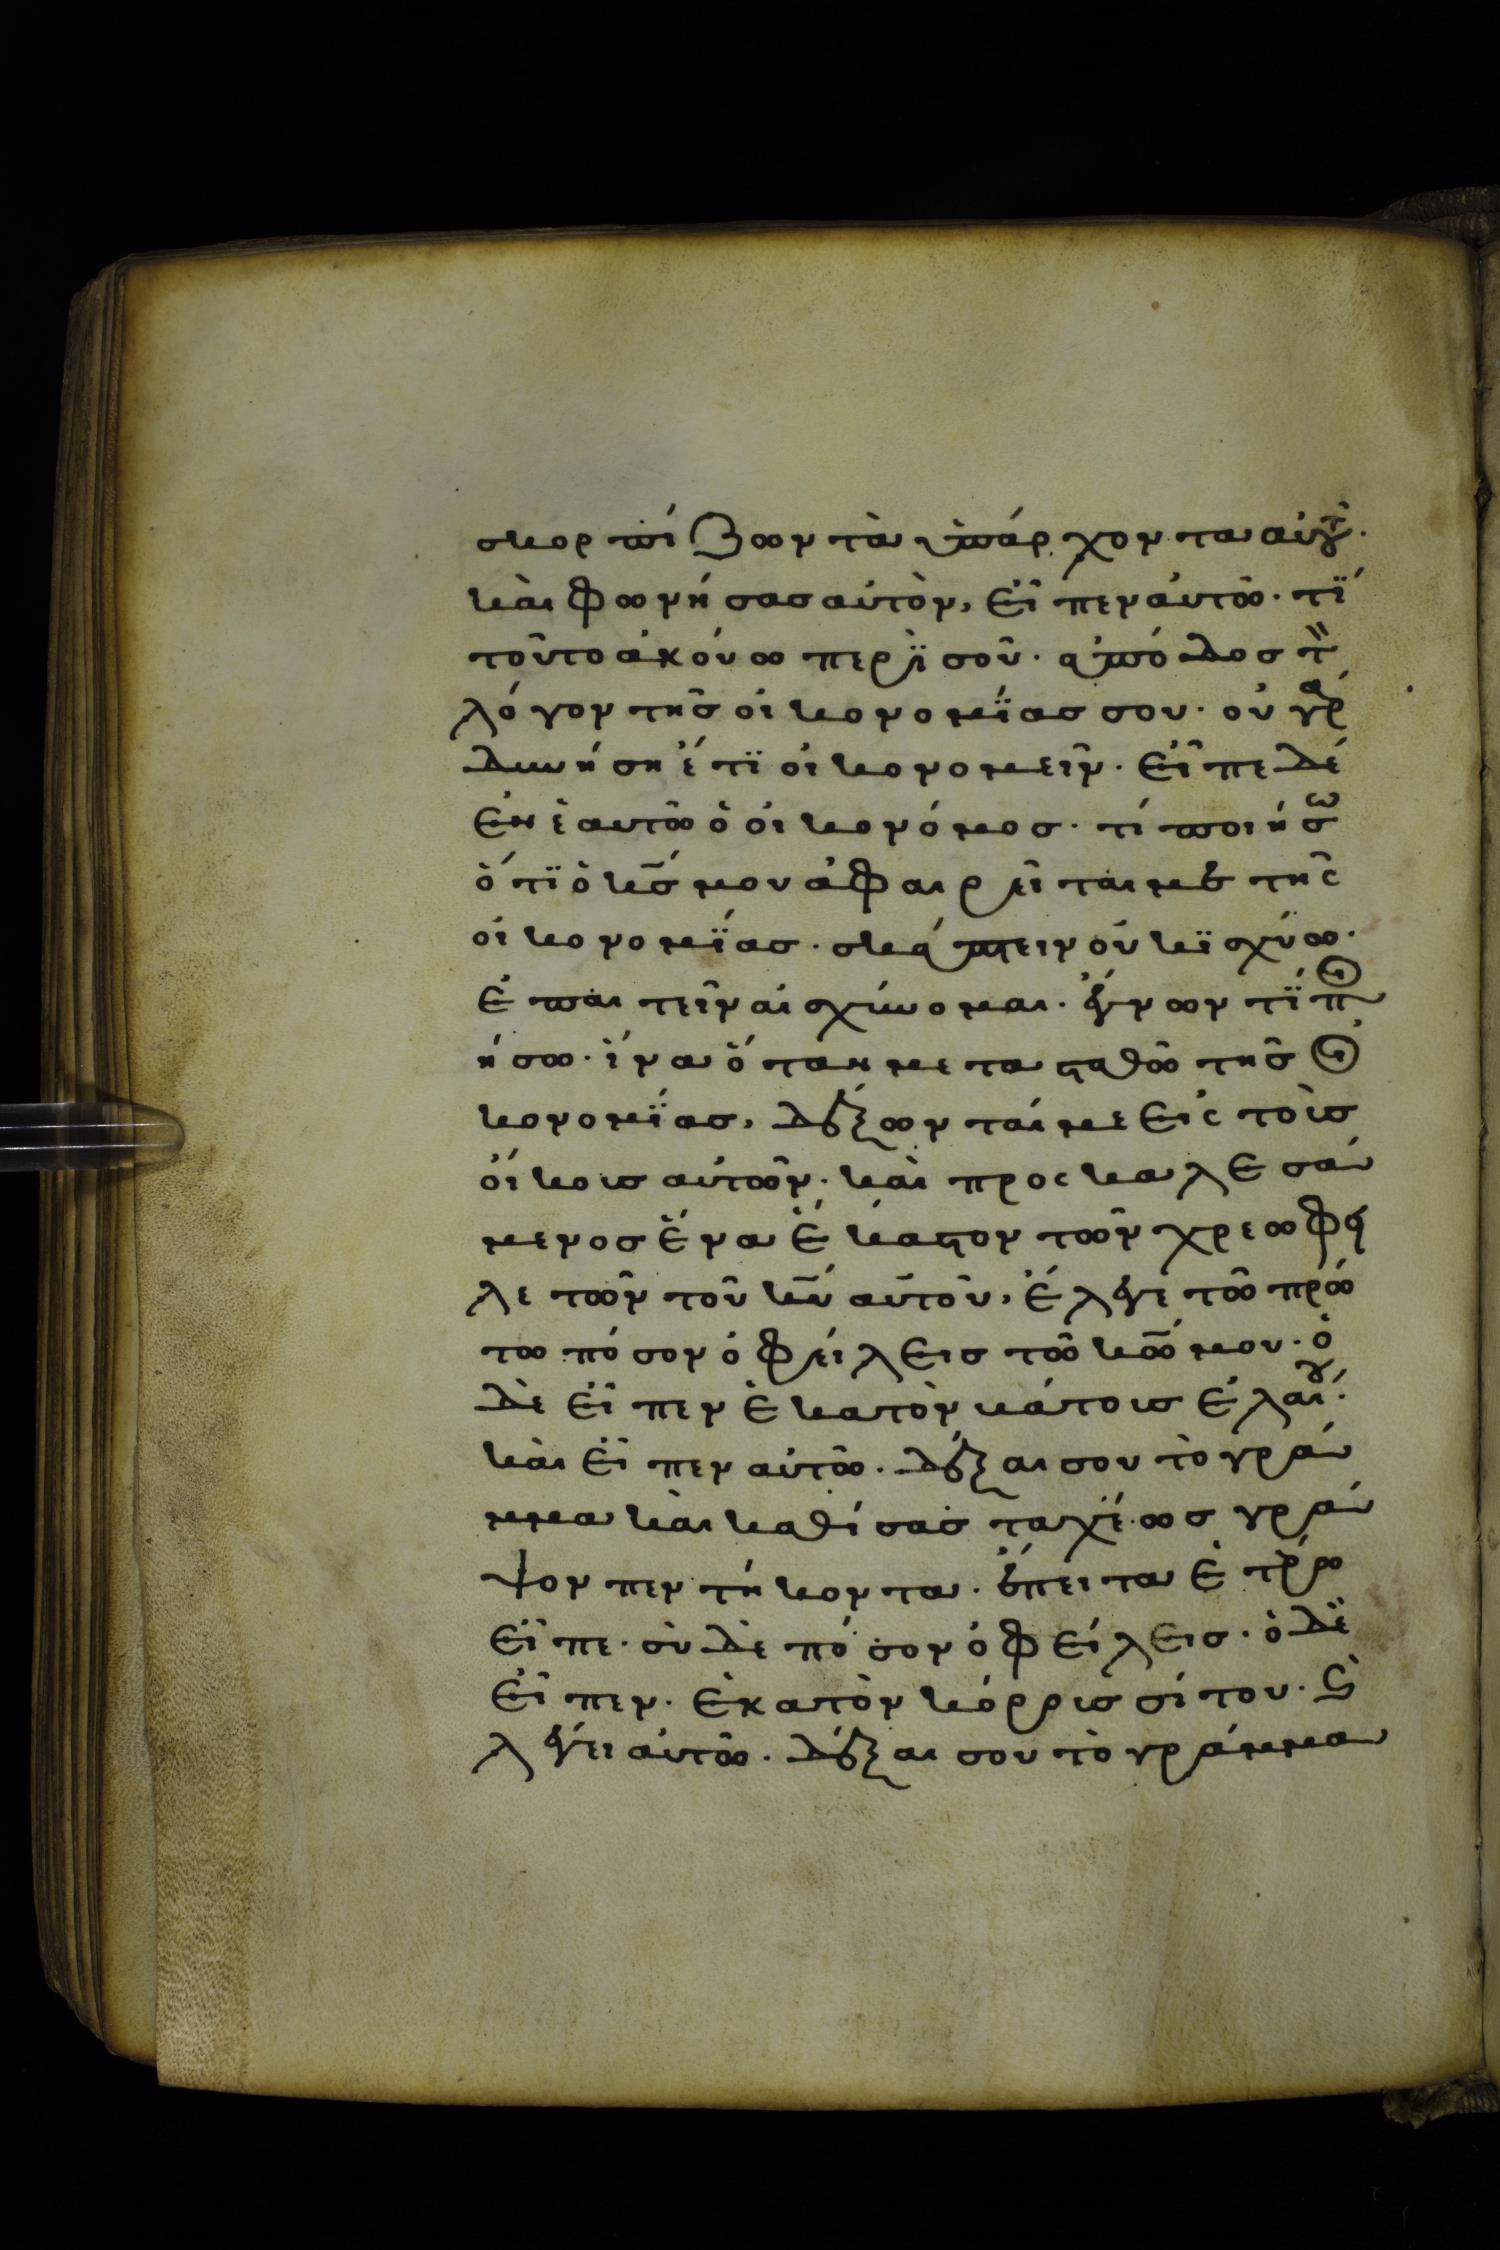 σκορπίζων τὰ ὑπάρχοντα αὐτοῦ·
καὶ φωνήσας αὐτὸν, εἶπεν αὐτῶ· τΐ
τοῦτο ἀκούω περῒ σοῦ· ἀπόδος τ̏
λόγον τῆς οἰκονομΐας σου· οὐ γὰρ
δυνήση ἔτϊ οἰκονομεῖν· εἶπε δέ
ἐν ἑαυτῶ ὁ οἰκονόμος· τί ποιήσω
ὅτϊ ὁ κ̅ς̅ μου ἀφαιρεῖται με τῆς
οἰκονομΐας· σκάπτειν οὐκ ϊσχύω·
ἐπαιτεῖν αἰσχύνομαι· ἔγνων τΐ ποι
ήσω· ἵνα ὅταν μετασταθῶ τῆς οἰ
κονομΐας, δέξωνταί με εἰς τοὺς
οἴκους αὐτῶν· καὶ προσκαλεσά
μενος ἕνα ἕκαστον τῶν χρεωφει
λετῶν τοῦ κ̅υ̅ αὐτοῦ, ἔλεγε τῶ πρώ
τω πόσον ὀφείλεις τῶ κ̅ω̅ μου· ὁ
δὲ εἶπεν ἑκατὸν κάτους ἐλαίου·
καὶ εἶπεν αὐτῶ· δέξαι σου τὸ γρά
μμα καὶ καθίσας ταχέως γρά
ψον πεντήκοντα· ἔπειτα ἑτέρω
εἶπε· σὺ δὲ πόσον ὀφείλεις· ὁ δὲ
εἶπεν· ἑκατὸν κόρρους σίτου· ϗ̀
λέγει αὐτῶ· δέξαι σου τὸ γράμμα